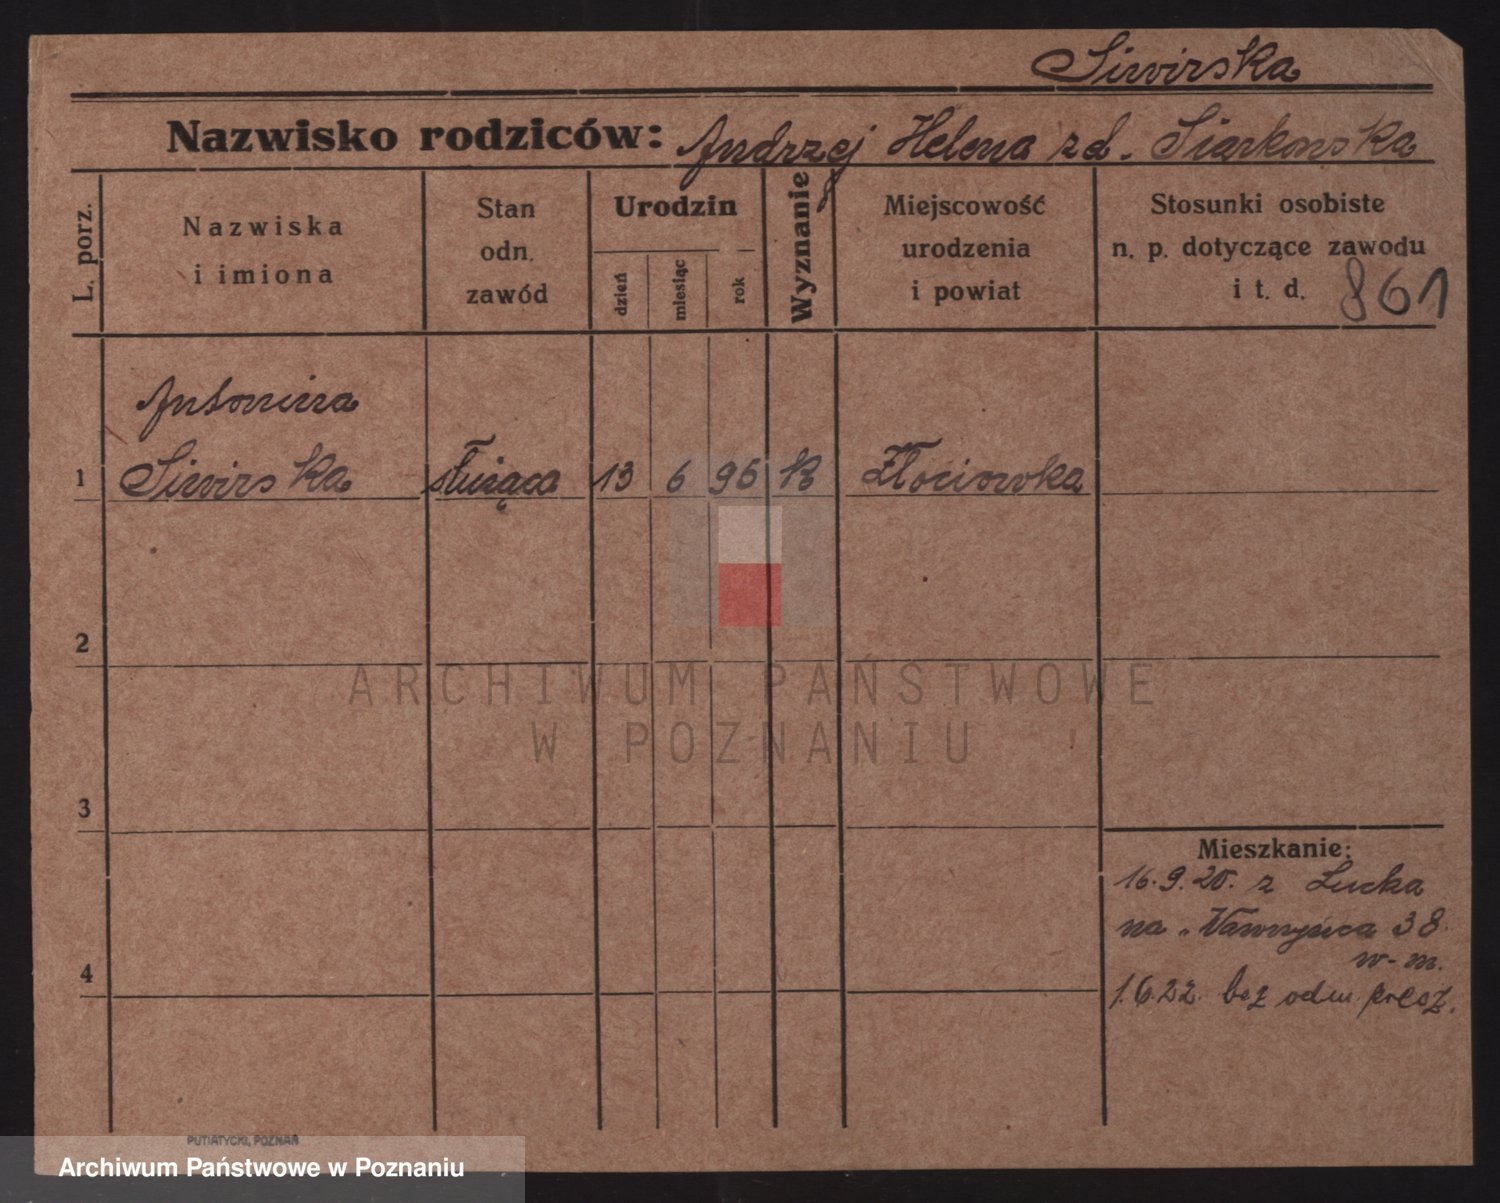 Siwirska
Nazwisko rodziców: Andrzej Helena zd. Siarkowska
L. porz.
Nazwiska
i imiona
Stan
odn.
zawód
Urodzin
dzień
miesiąc
rok
Wyznanie
Miejscowość
urodzenia
i powiat
Stosunki osobiste
n. p. dotyczące zawodu
i t. d. 861
Antonina
1 Siwirska służąca 13 6 96 K Złociowka
2
ARCHIWUM PAŃSTWOWE
W POZNANIU
3
Mieszkanie:
16.9.20. z Lucka
na Wawrzyńca 38.
w-m.
4
1.6.22. bez odm.
PUTIATYCKI, POZNAŃ
Archiwum Państwowe w Poznaniu